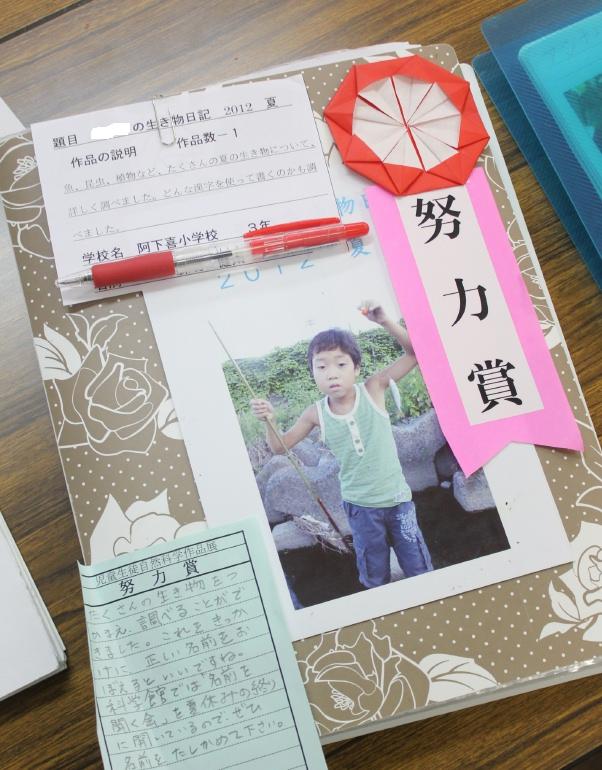 題目 の生き物日記 2012 夏
作品の説明 作品数－1
魚、昆虫、植物など、たくさんの夏の生き物について、
詳しく調べました。どんな漢字を使って書くのかも調
べました。
学校名 阿下喜小学校 3年
物
2012 夏
努力賞
児童生徒自然科学作品展
努力賞
たくさんの生き物をつ
かまえ、調べることがで
きました。これをきっか
けに、正しい名前をお
ぼえるといいですね。
科学館では「名前を
聞く会」を夏休みの終り
に開いているので、ぜひ
名前をたしかめて下さい。